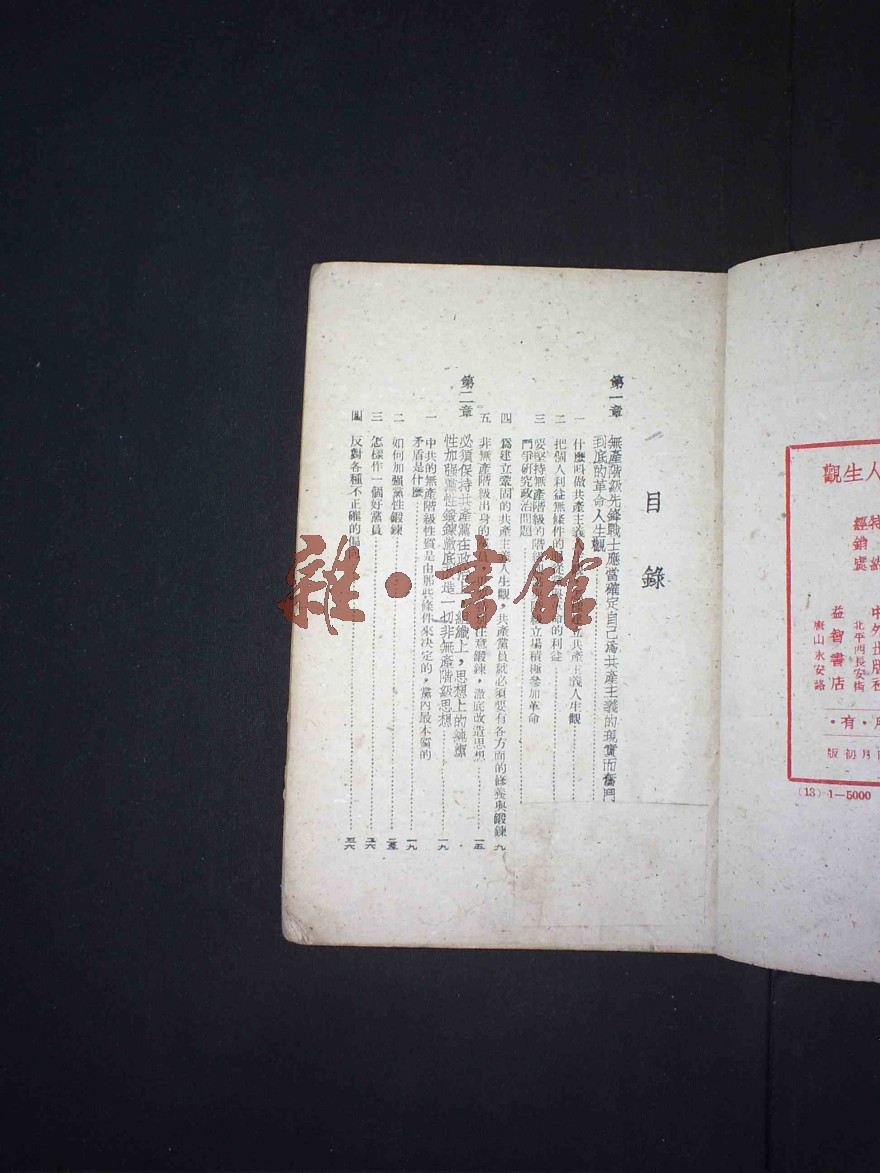 觀生人
經銷處
中外出版社
北平西長安街
益智書店
唐山永安路
有・
版初月
(13) 1—5000
目錄
第一章 無產階級先鋒戰士應當確定自己為共產主義的現實而奮鬥
到底的革命人生觀
一 什麼叫做共產主義人 建立共產主義人生觀
二 把個人利益無條件的 的利益
三 要堅持無產階級的階級 立場積極參加革命
鬥爭研究政治問題
四 為建立鞏固的共產主義人生觀，共產黨員就必須要有各方面的修養與鍛鍊 九
五 非無產階級出身的 注意鍛鍊，澈底改造思想 一五
第二章 必須保持共產黨在政治 組織上，思想上的純潔
性加强黨性鍛鍊澈底改造一切非無產階級思想 一九
一 中共的無產階級性質是由那些條件來決定的，黨內最本質的
矛盾是什麼 一九
二 如何加强黨性鍛鍊
三 怎樣作一個好黨員
四 反對各種不正確的偏向
雜・書館